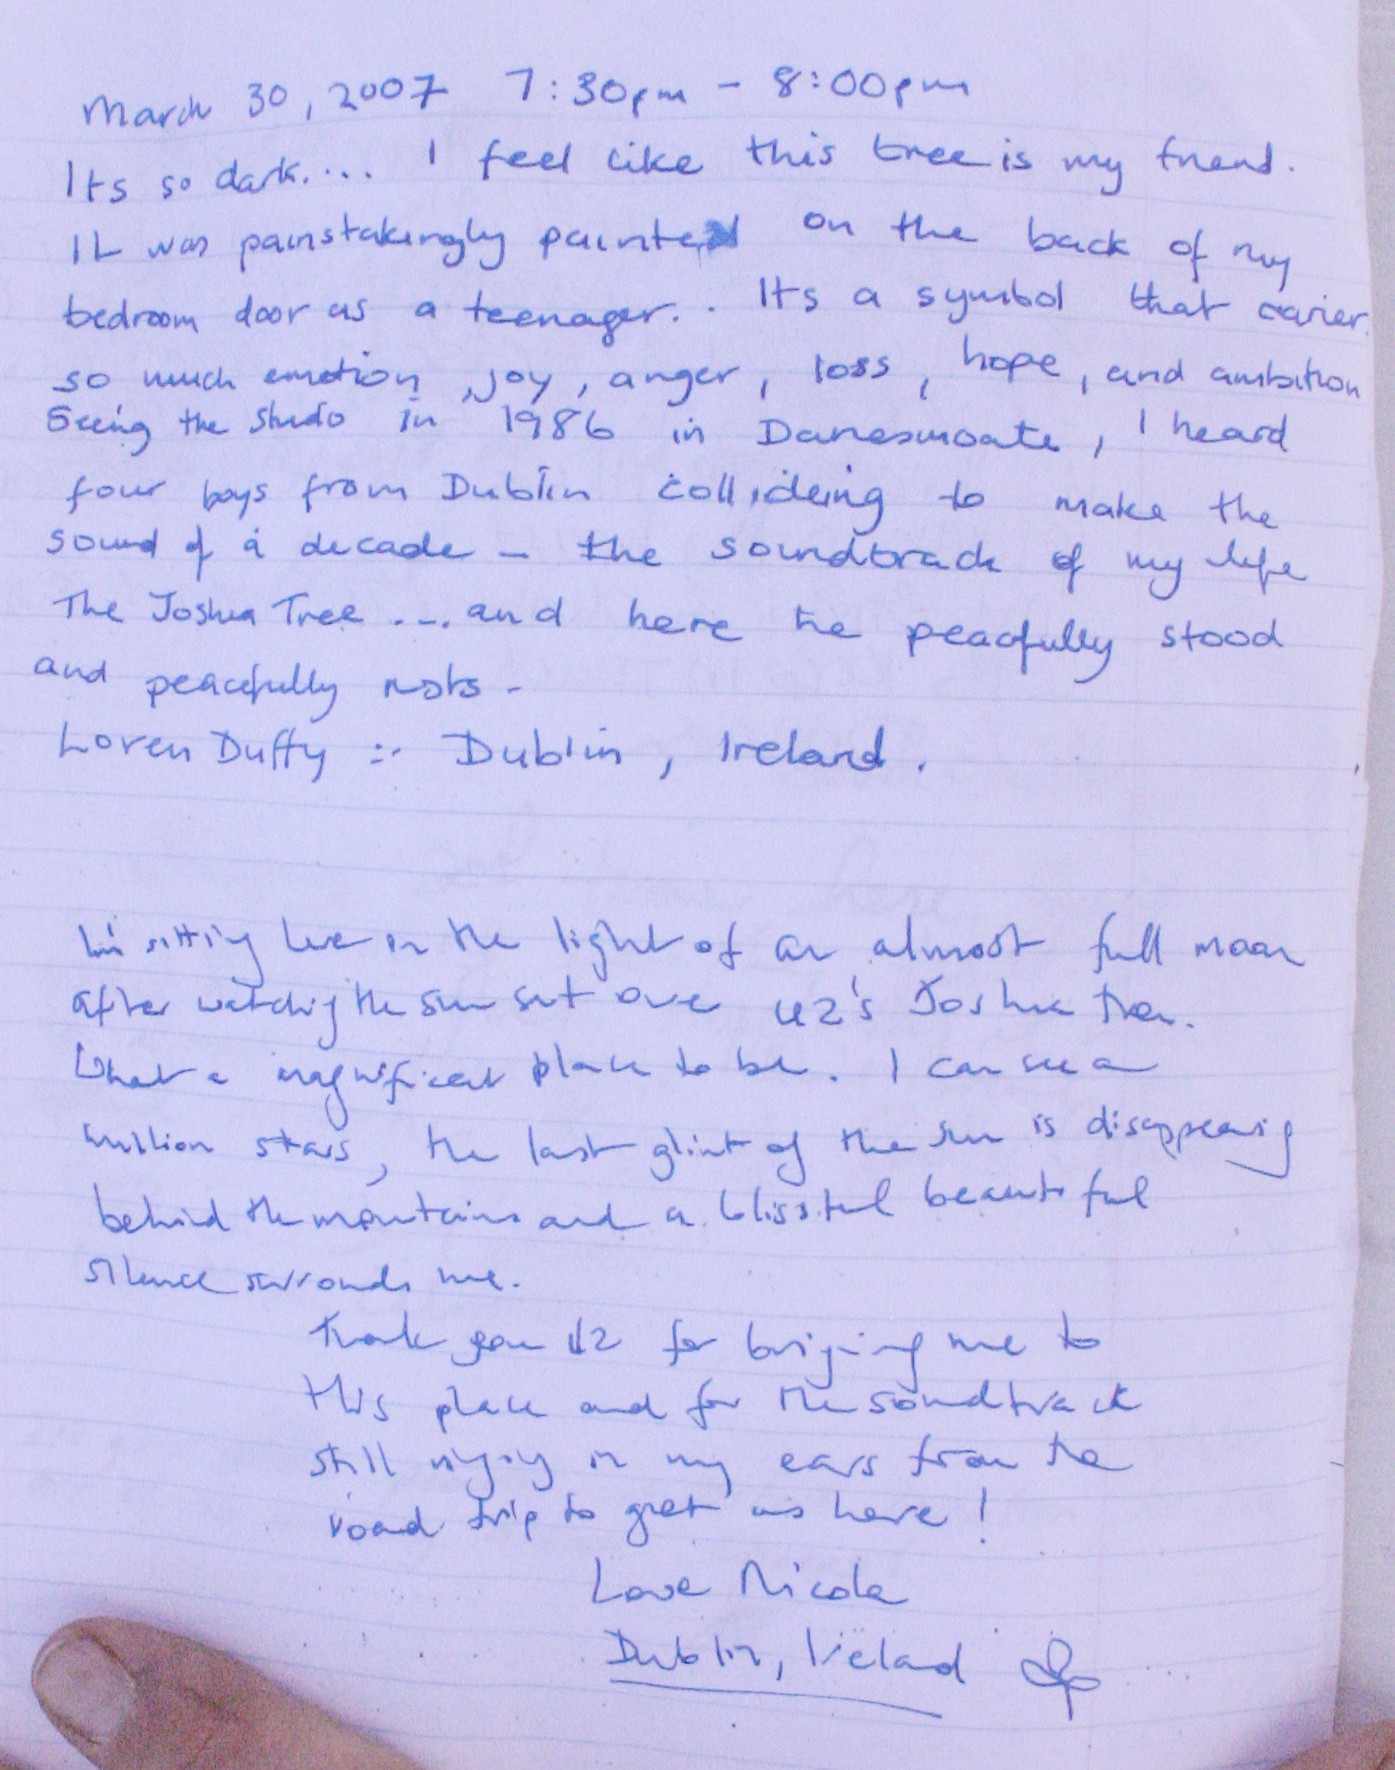 March 30, 2007 7:30pm - 8:00pm
Its so dark.... I feel like this tree is my friend.
It was painstakingly painted on the back of my
bedroom door as a teenager.. Its a symbol that carries
so much emotion, joy, anger, loss, hope, and ambition
Seeing the studio in 1986 in Danesmoate, I heard
four boys from Dublin collideing to make the
sound of a decade - the soundtrack of my life
The Joshua Tree .... and here he peacfully stood
and peacefully rests -
Loren Duffy :- Dublin, Ireland.
I'm sitting here in the light of an almost full moon
after watching the sun set over U2's Joshua tree.
What a magnificent place to be. I can see a
million stars, the last glint of the sun is disappearing
behind the mountains and a blissful beautiful
silence surrounds me.
Thank you U2 for bringing me to
this place and for the soundtrack
still ringing in my ears from the
road trip to get us here!
Love Nicola
Dublin, Ireland